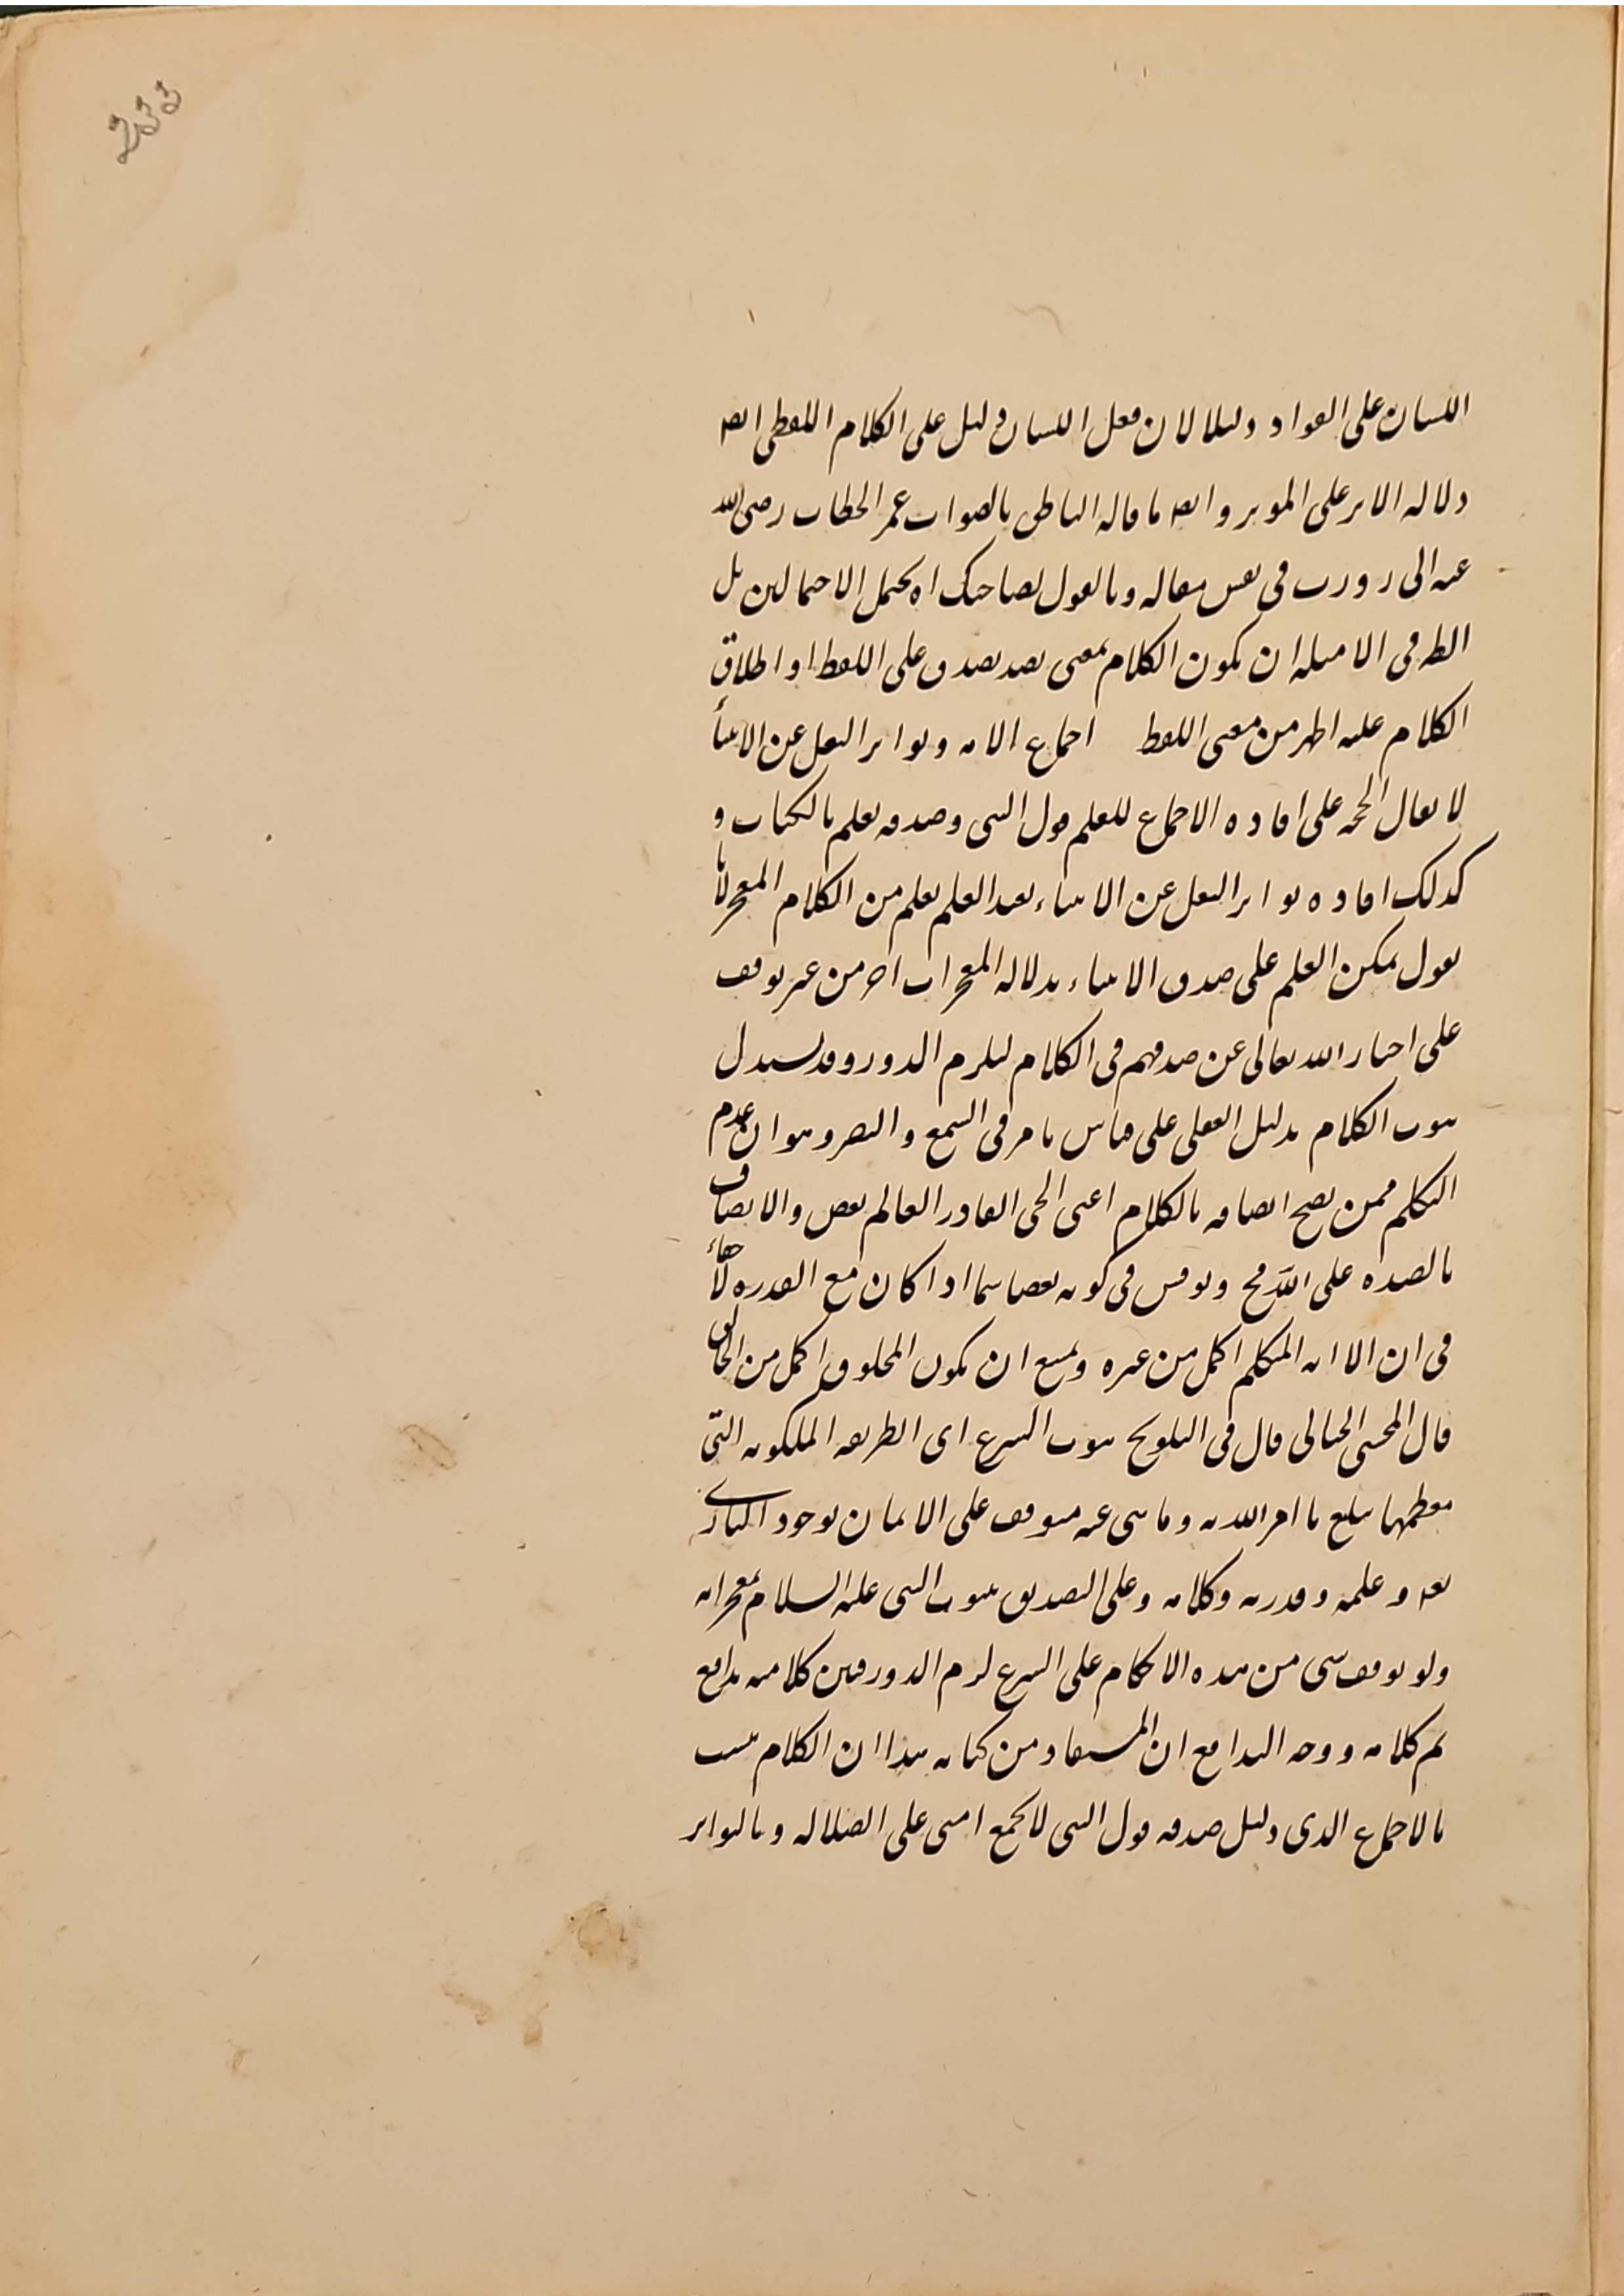 اللسان على الفواد دليلا لان فعل اللسان دليل على الكلام اللفظى ايضا
دلاله الاثر على الموثر وايضا ما قاله الناطق بالصواب عمر الخطاب رضى الله
عنه انى زورت فى نفسى مقاله وما تقول لصاحبك اه يحتمل الاحتمالين بل
الظ فى الامثله ان يكون الكلام بمعنى يصدق على اللفظ او اطلاق
الكلام عليه اظهر من معنى اللفظ اجماع الامه وتواتر النقل عن الانبيأ
لا يقال الحجه على افاده الاجماع للعلم قول النبى وصدقه يعلم بالكتاب و
كذلك افاده تواتر النقل عن الانبياء بعد العلم يعلم من الكلام المعجز لانا
نقول يمكن العلم على صدق الانبياء بدلاله المعجزات اخر من غير توقف
على اخبار الله تعالى عن صدقهم فى الكلام ليلزم الدور وقد يستدل
ثبوت الكلام بدليل العقلى على قياس ما مر فى السمع والبصر وهو ان عدم
التكلم ممن يصح اتصافه بالكلام اعنى الحى القادر العالم نقص والاتصاف
بالضده على الله مح ونوقش فى كونه نقصا سيما اذا كان مع القدره لا خفاء
فى ان الا انه المتكلم اكمل من غيره ويمتنع ان يكون المخلوق اكمل من الخالق
قال المحشى الخيالى قال فى التلويح ثبوت الشرع اى الطريقه الملكوته التى
معظمها تبليغ ما امر الله به وما نهى عنه متوقف على الايمان بوجود البارى
تعه وعلمه وقدرته وكلامه وعلى التصديق بثبوت النبى عليه السلام بمعجزاته
ولو توقف شى من هذه الاحكام على الشرع لزم الدور فبين كلاميه تدافع
ثم كلامه ووجه التدافع ان المستفاد من كتابه هذا ان الكلام يثبت
بالاجماع الذى دليل صدقه قول النبى لا يجمع امتى على الضلاله وبالتواتر